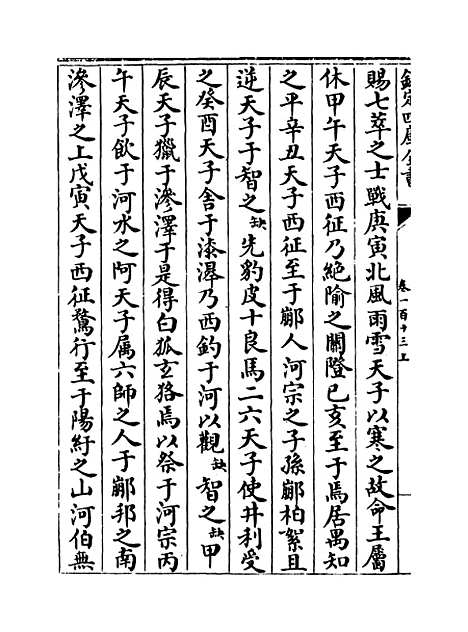 欽定四庫全書
卷一百十三上
賜七萃之士戰庚寅北風雨雪天子以寒之故命王屬
休甲午天子西征乃絶隃之關隥已亥至于焉居禺知
之平辛丑天子西征至于䣙人河宗之子孫䣙柏絮且
逆天子于智之缺先豹皮十良馬二六天子使井利受
之癸酉天子舍于漆澤乃西釣于河以觀缺智之缺甲
辰天子獵于滲澤于是得白狐玄狢焉以祭于河宗丙
午天子飲于河水之阿天子属六師之人于䣙邦之南
滲澤之上戊寅天子西征騖行至于陽紆之山河伯無